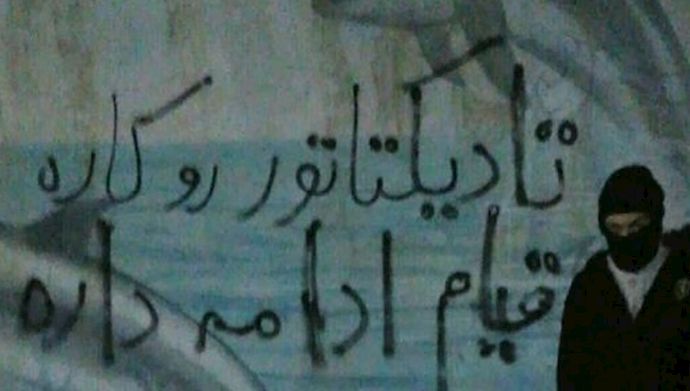 تا دیکتاتور رو کاره
قیام ادامه داره